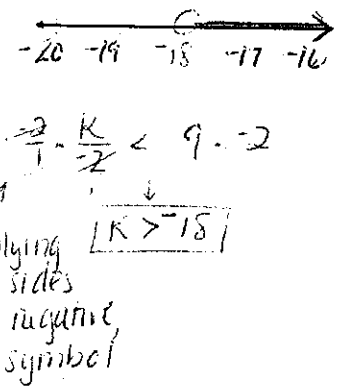 -20 -19 -18 -17 -16
-2/1 · K/-2 < 9 · -2
K > -18
lying
sides
negative,
symbol